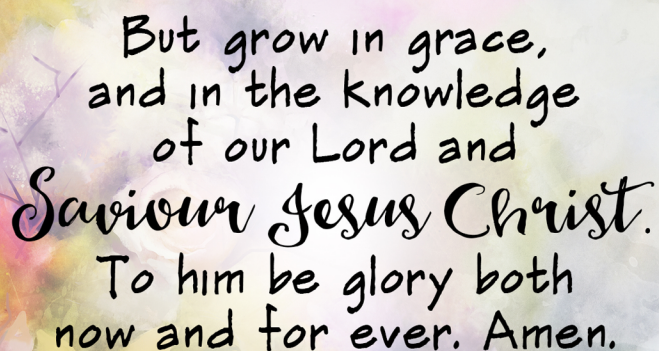 But grow in grace,
and in the knowledge
of our Lord and
Saviour Jesus Christ.
To him be glory both
now and for ever. Amen.